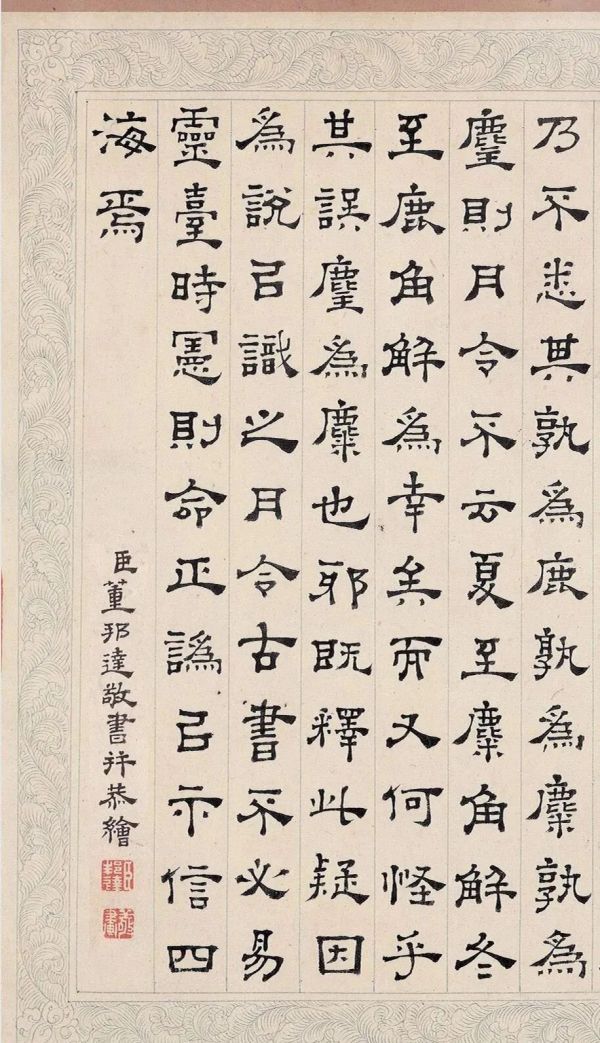 乃不悉其孰為鹿孰為麋孰為
麈則月令不云夏至麋角解冬
至鹿角解為幸矣而又何怪乎
其誤麈為麋也邪既釋此疑因
為說㠯識之月令古書不必易
靈臺時憲則命正譌㠯示信四
海焉
臣董邦達敬書并恭繪